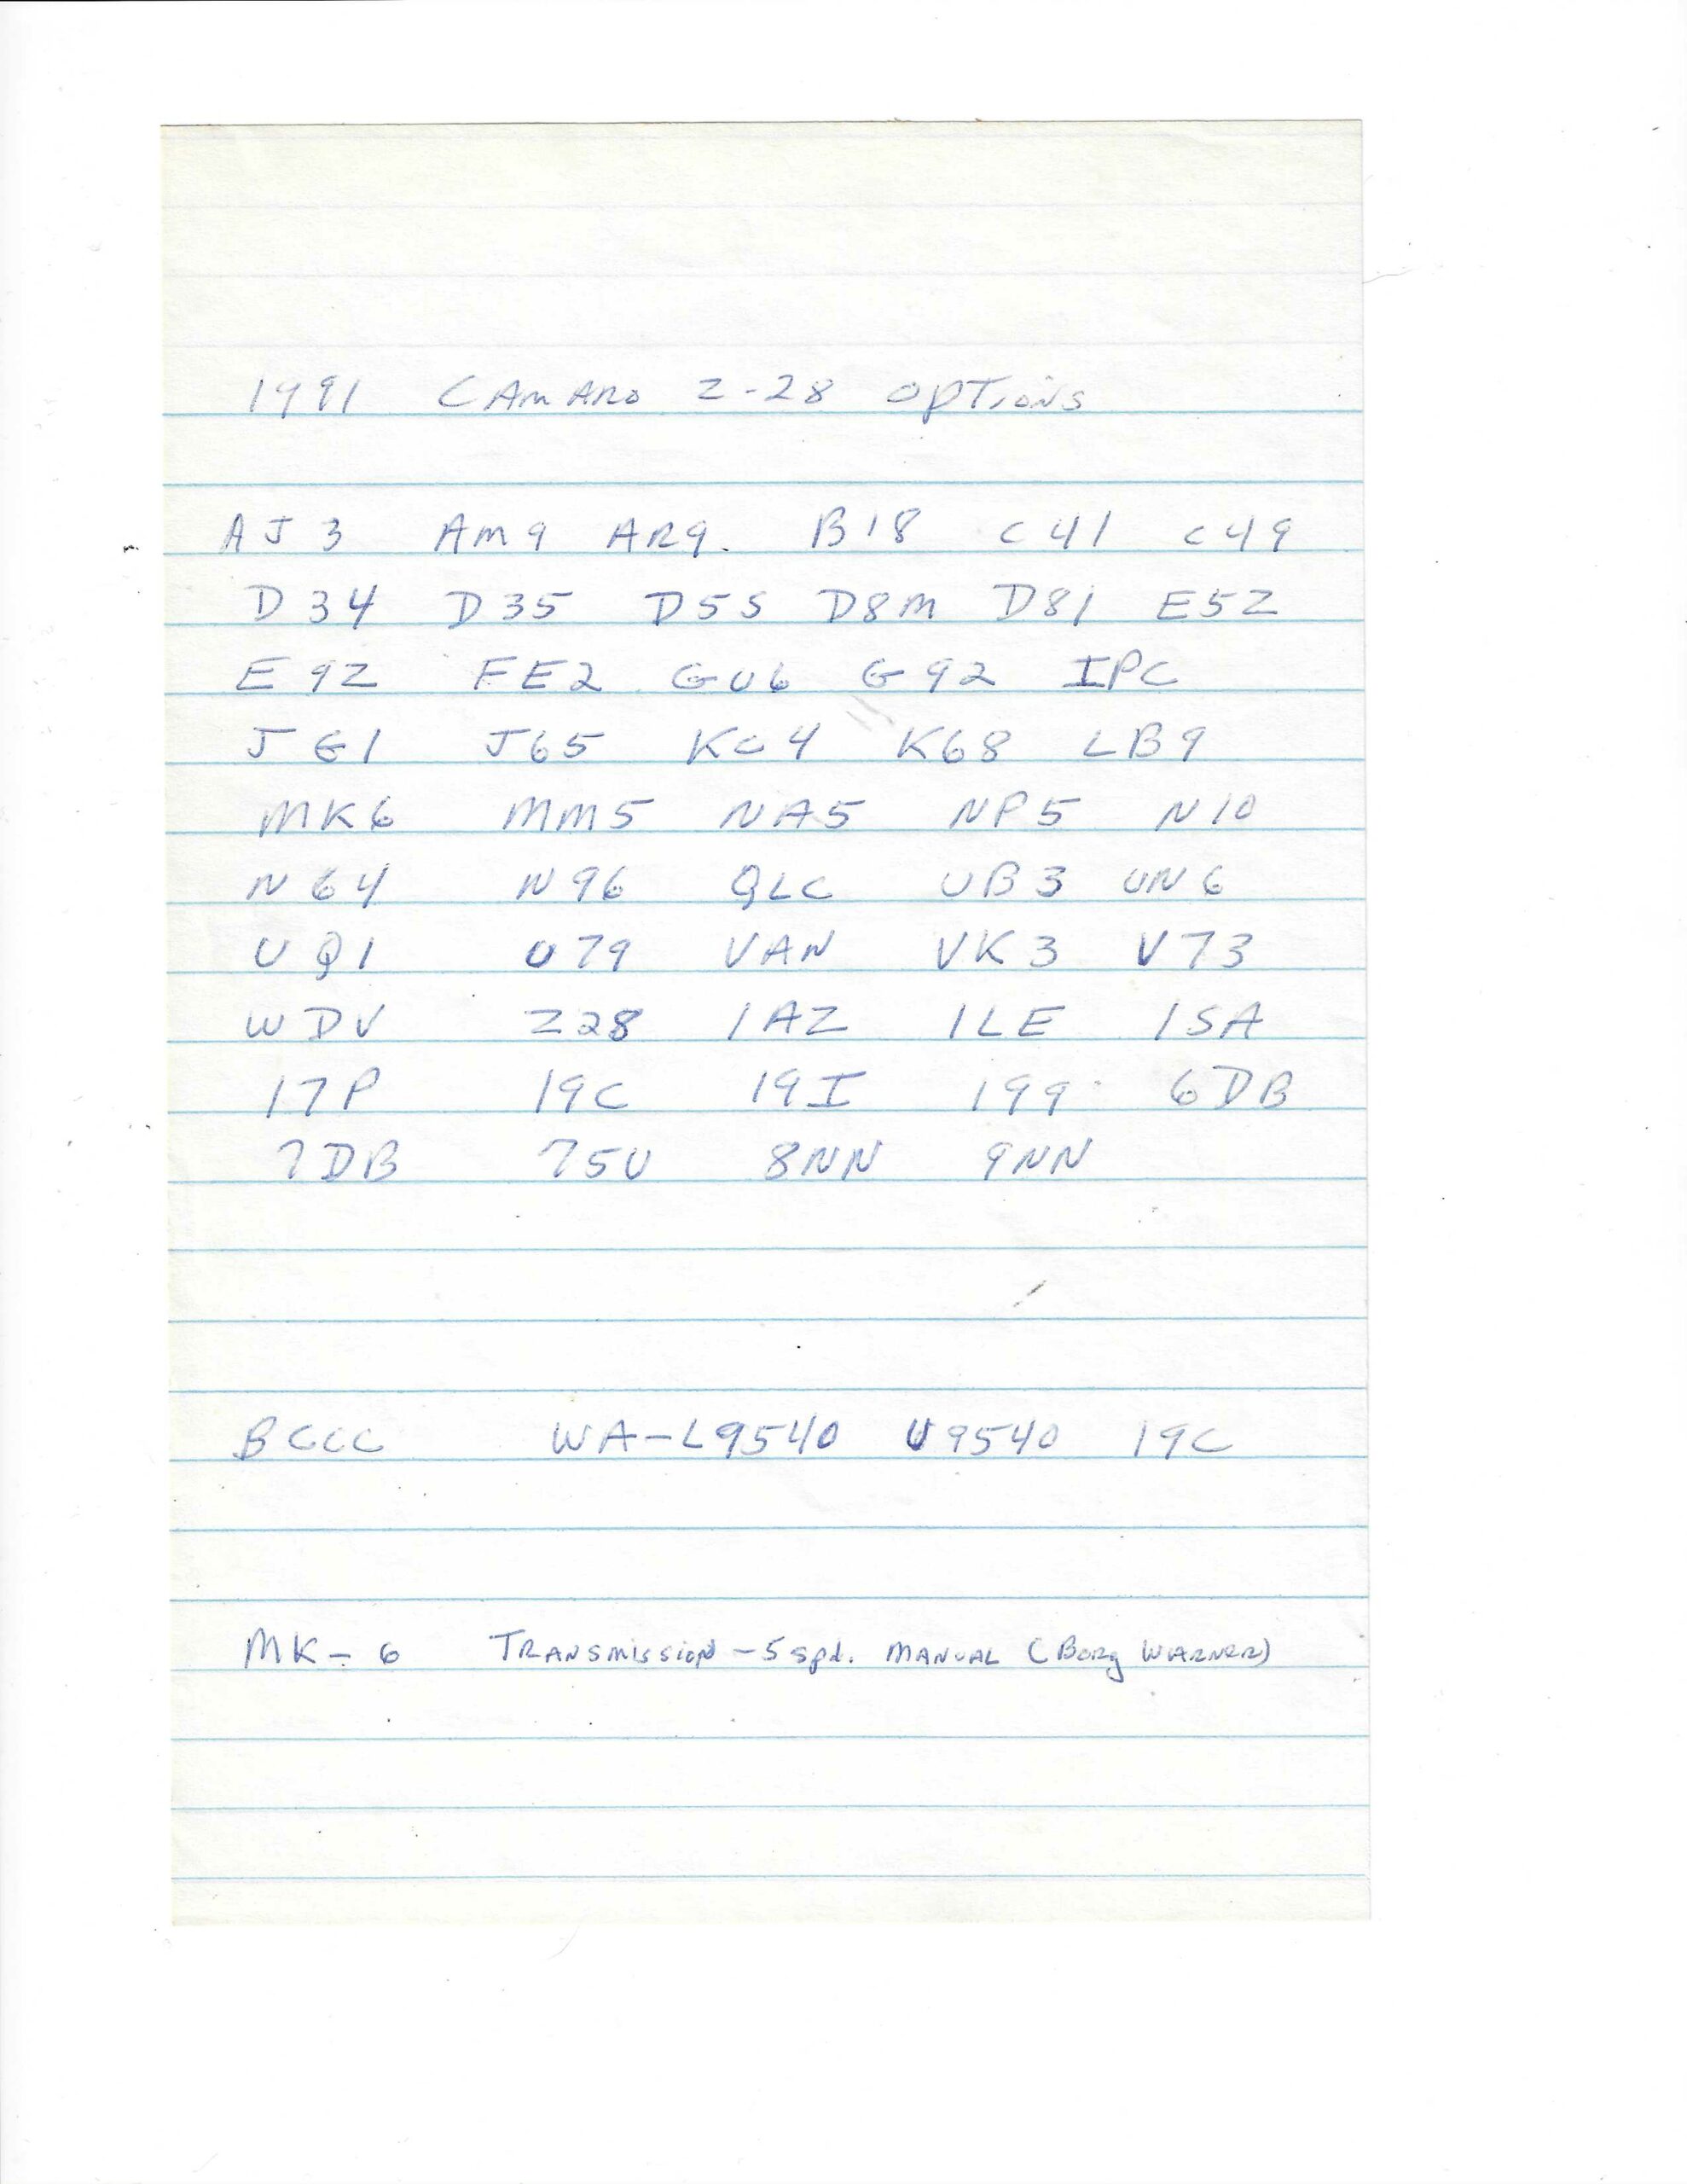 1991 CAMARO Z-28 OPTIONS
AJ3 AM9 AR9. B18 C41 C49
D34 D35 D5S D8M D81 E5Z
E9Z FE2 GU6 G92 IPC
JG1 J65 KC4 K68 LB9
MK6 MM5 NA5 NP5 N10
N64 N96 QLC UB3 UN6
UQ1 U79 VAN VK3 V73
WDV Z28 1AZ 1LE 1SA
17P 19C 19I 199 6DB
7DB 75U 8NN 9NN
BCCC WA-L9540 U9540 19C
MK-6 TRANSMISSION - 5 spd. MANUAL (Borg WARNER)